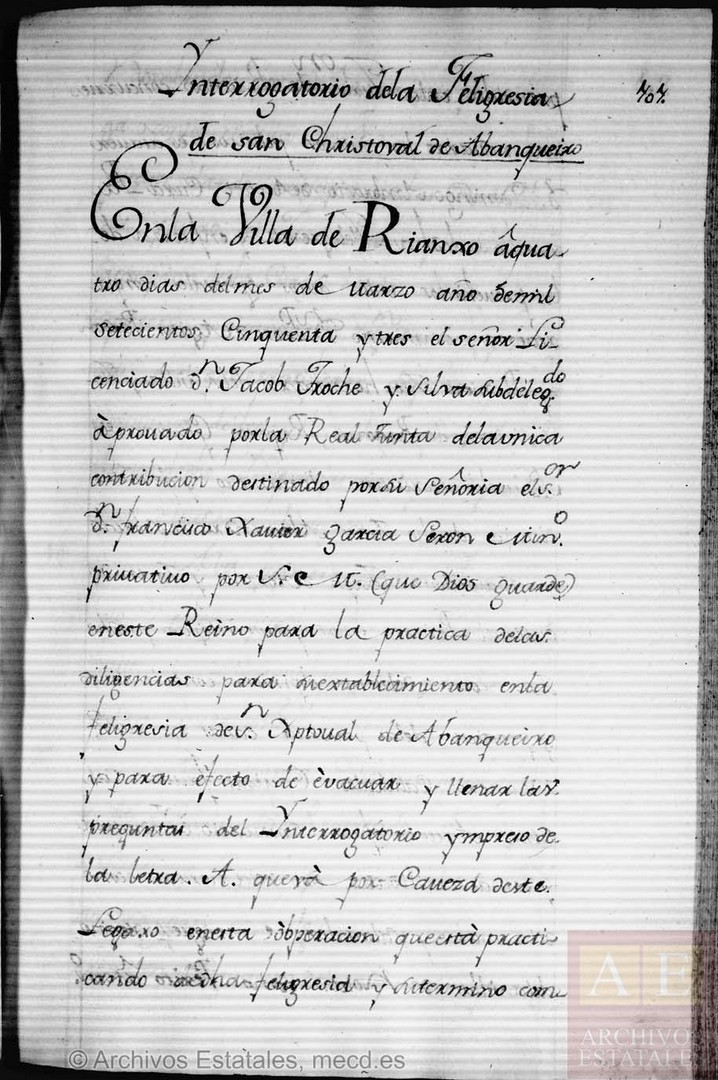 Ynterrogatorio dela Feligresia 707.
de san Christoval de Abanqueixo
Enla Villa de Rianxo âqua
tro dias delmes de Marzo año demil
setecientos Cinquenta ytres el señor Li
cenciado dn. Jacob Troche y Silva subdelegdo.
àprouado porla Real Junta delavnica
contribucion destinado porsu Señoria els.or
dn. francisco Xauier garcia Seron Min.o
priuatiuo por S. M. (que Dios guarde)
eneste Reino para la practica delas
diligencias para suextablecimiento enla
feligresia des.n Xptoual de Abanqueixo
y para efecto de èvacuar y llenar las
preguntas del Ynterrogatorio ympreso de
la letra. A. quevà por Caueza deste
Legaxo enesta òbperacion queestà practi
cando dedha feligresia y sutermino com
© Archivos Estatales, mecd.es
AE
ARCHIVOS
ESTATALES